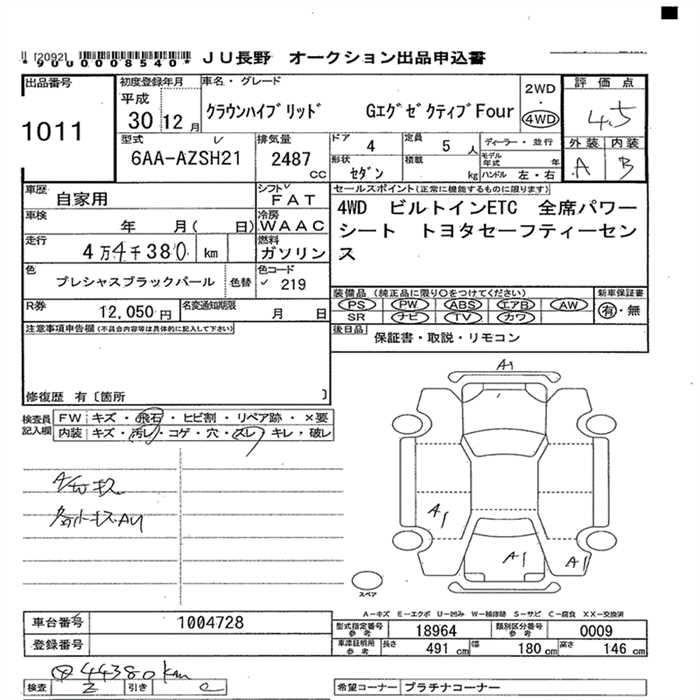 [2092]
*9000008540* JU長野 オークション出品申込書
出品番号 初度登録年月 車名・グレード 2WD 評価点
1011 平成 30 12月 クラウンハイブリッド Gエグゼクティブ Four ・ 4WD 4.5
型式 排気量 ドア 定員 ディーラー・並行 外装 内装
6AA-AZSH21 2487 CC 4 5人 モデル年式 年 A B
形状 積載 ハンドル 左・右
セダン kg
車歴 自家用 シフト FAT セールスポイント(正常に機能するものに限ります)
車検 年 月( 日) 冷房 WAAC 4WD ビルトインETC 全席パワー
走行 4万4千380 km 燃料 ガソリン シート トヨタセーフティーセン
ス
色 プレシャスブラックパール 色替 色コード 219
R券 12,050円 名変通知期限 月 日 装備品(純正品に限り○をつけてください) 新車保証書
PS PW ABS エアB AW 有・無
SR ナビ TV カワ
注意事項申告欄(不具合内容等は具体的に記入して下さい) 後日品 保証書・取説・リモコン
修復歴 有〔箇所 〕
検査員 FW キズ・飛石・ヒビ割・リペア跡・×要
記入欄 内装 キズ・汚レ・コゲ・穴・スレ・キレ・破レ
A1
A1
A1
A1
スペア
A-キズ E-エクボ U-凹み W-補修跡 S-サビ C-腐食 XX-交換済
車台番号 1004728 型式指定番号 参考 18964 類別区分番号 参考 0009
登録番号 車庫証明用 参考 長さ 491 cm 幅 180 cm 高さ 146 cm
44380km
検査 引き 希望コーナー プラチナコーナー